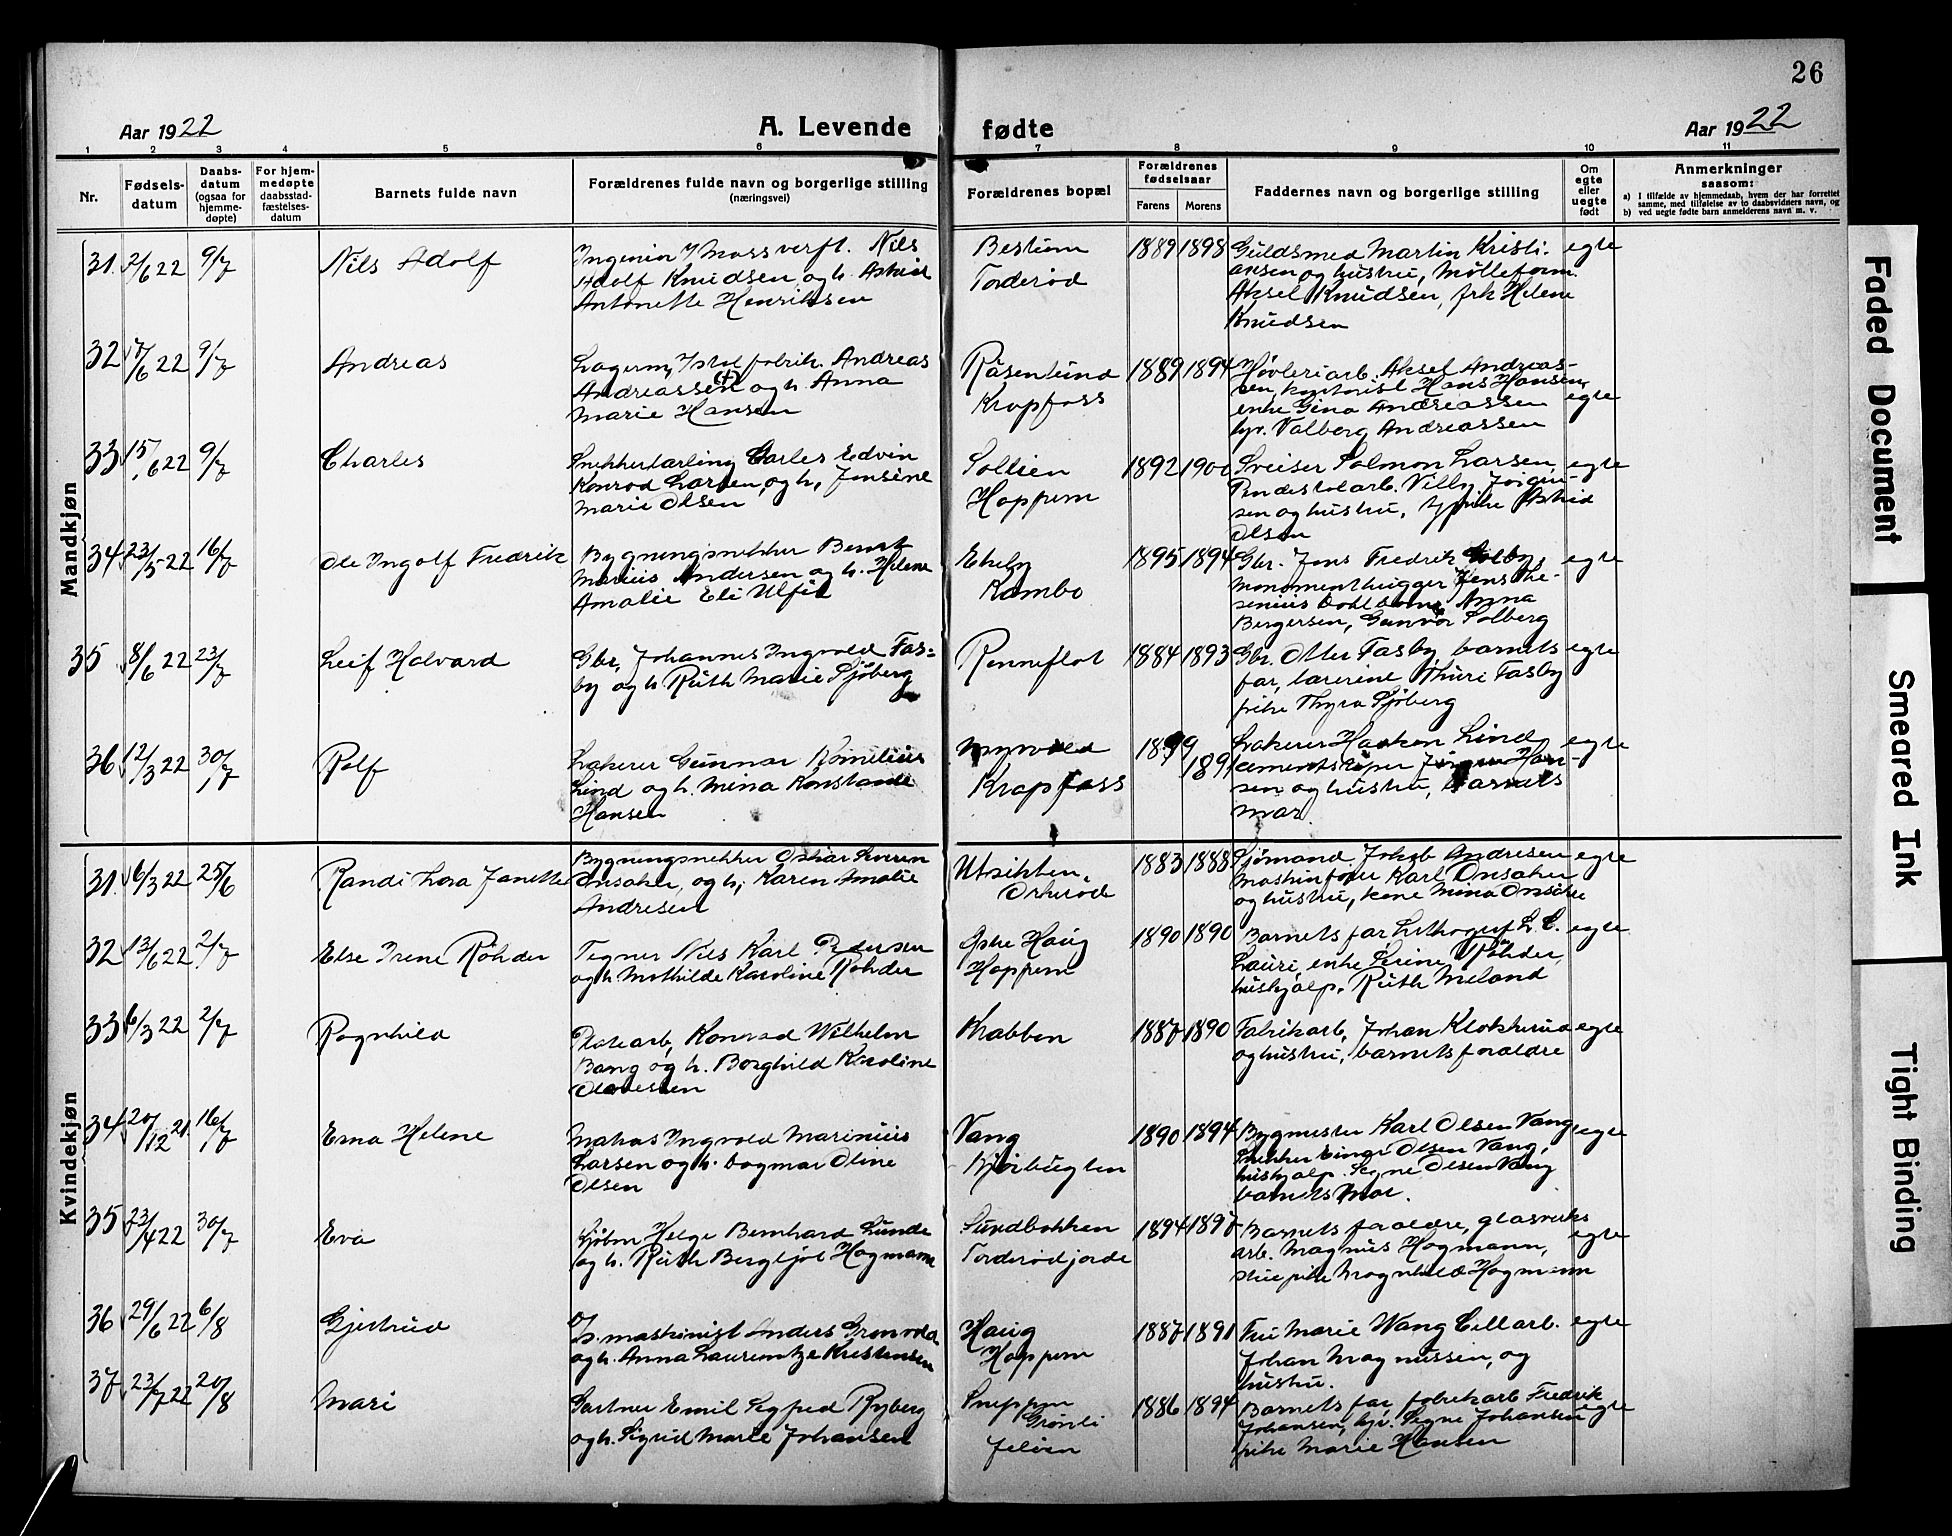 26
Aar 1922 A. Levende fødte Aar 1922
1 2 3 4 5 6 7 8 9 10 11
Nr. Fødsels-datum Daabs-datum (ogsaa for hjemme-døpte) For hjem-medøpte daabsstad-fæstelses-datum Barnets fulde navn Forældrenes fulde navn og borgerlige stilling (næringsvei) Forældrenes bopæl Forældrenes fødselsaar Farens Morens Faddernes navn og borgerlige stilling Om egte eller uegte født Anmerkninger saasom:
a) I tilfælde av hjemmedaab, hvem der har forrettet samme, med tilføielse av to daabsvidners navn, og
b) ved uegte fødte barn anmelderens navn m. v.
Mandkjøn
31. 2/6 22 9/7 Nils Adolf Ingeniør v/ Moss verft. Nils Bestum 1889 1898 Guldsmed Martin Kristi- egte
Adolf Knudsen og h. Astrid Torderød ansen og hustru, Mølleform.
Antonette Henriksen Aksel Knudsen, frk Helene
Knudsen
32 7/6 22 9/7 Andreas Lagerm. Andreas Rosenlund 1889 1894 Høvleriarb. Aksel Andreas-
Andreassen (+) og h. Anna Krapfoss sen, Hans Hansen, egte
Marie Hansen enke Gina Andreassen
Valborg Andreassen
33 15/6 22 9/7 Charles Carles Edvin Sollien 1892 Sveiser Salmon Larsen, egte
Konrad Larsen, og h. Jensine Hoppern Willy Jørgen-
Marie Olsen sen og hustru, pike Astrid
Olsen
34 23/5 22 16/7 Ole Ingolf Fredrik Bygningsnekker Bernt Ekeby 1895 1894 Gbr. Jens Fredrik Solby, egte
Marius Andersen og h. Helene Kambo Monumenthugger Jens
Amalie Eli Anna
Bergersen, Gunvor Solberg
35 8/6 22 23/7 Leif Halvard Gbr. Johannes Ingvald Fas- Renneflot 1884 1893 Gbr. Otter Fasby, barnets egte
by og h. Ruth Marie Sjøberg far, lærerine Thuri Fasby
pike Thyra Sjøberg
36 12/3 22 30/7 Rolf Lakerer Gunnar Kornelius Myrvold 1899 Lakerer Haakon Lind, egte
Lind og h. Mina Konstanse Krapfoss 189 Han-
Hansen sen og hustru, barnets
mor.
Kvindekjøn
31. 16/3 22 25/6 Randi Lova Janette Bygningsnekker Oskar Severin Utsikten, 1883 1888 Sjømand Jakob Andresen egte
Onsaker, og h. Karen Amalie Orkerød Maskinfører Karl Onsaker
Andresen og hustru, Mina
32 13/6 22 2/7 Else Irene Röhder Tegner Nils Karl Pedersen Østre Haug 1890 1890 Barnets far Lithograf L. C. egte
og h. Mathilde Karoline Rohder Hoppern Lauri, enke Serine Röhder,
hushjælp. Ruth Meland
33 6/3 22 2/7 Ragnhild Platearb. Konrad Wilhelm Krabben 1887 1890 Fabrikarb. Johan Klokkerud egte
Bang og h. Borghild Karoline og hustru, barnets forældre
Olavesen
34 20/12 21. 16/7 Erna Helene Ingvald Marinius Vang 1890 1894 Bygmester Karl Olsen Vang, egte
Larsen og h. Dagmar Oline Snekker Einar Olsen Vang,
Olsen hushjælp. Signe Olsen Vang
barnets mor.
35 23/4 22 30/7 Eva Sjøm Helge Bernhard Lunde Sundbakken 1894 1897 Barnets forældre, glasverks
og h. Ruth Bergljot Hagmann Torderødjorde arb. Magnus Hagmann, egte
stuepike Magnhild Hagmann
36 29/6 22 6/8 Gjertrud maskinist Anders Grønvold Haug 1887 1891 Fru Marie Wang Cellarb. egte
og h. Anna Laurentze Kristensen Hoppern Johan Magnussen, og
hustru.
37 23/7 22 20/8 Mari Gartner Emil Sigfred Ryberg 1886 1894 Barnets far, fabrikarb Fredrik
og h. Sigrid Marie Johansen Grønli Johansen, Signe Johansen egte
Jeløen pike Marie Hansen
Faded Document
Smeared Ink
Tight Binding